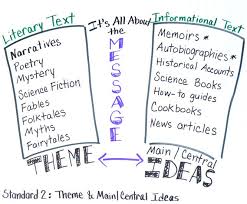 Literary Text
Narratives
Poetry
Mystery
Science Fiction
Fables
Folktales
Myths
Fairytales
THEME
It's All About
the
MESSAGE
Informational Text
Memoirs *
Autobiographies *
Historical Accounts
Science Books
How-to guides
Cookbooks
News articles
Main / Central
IDEAS
Standard 2: Theme & Main/Central Ideas